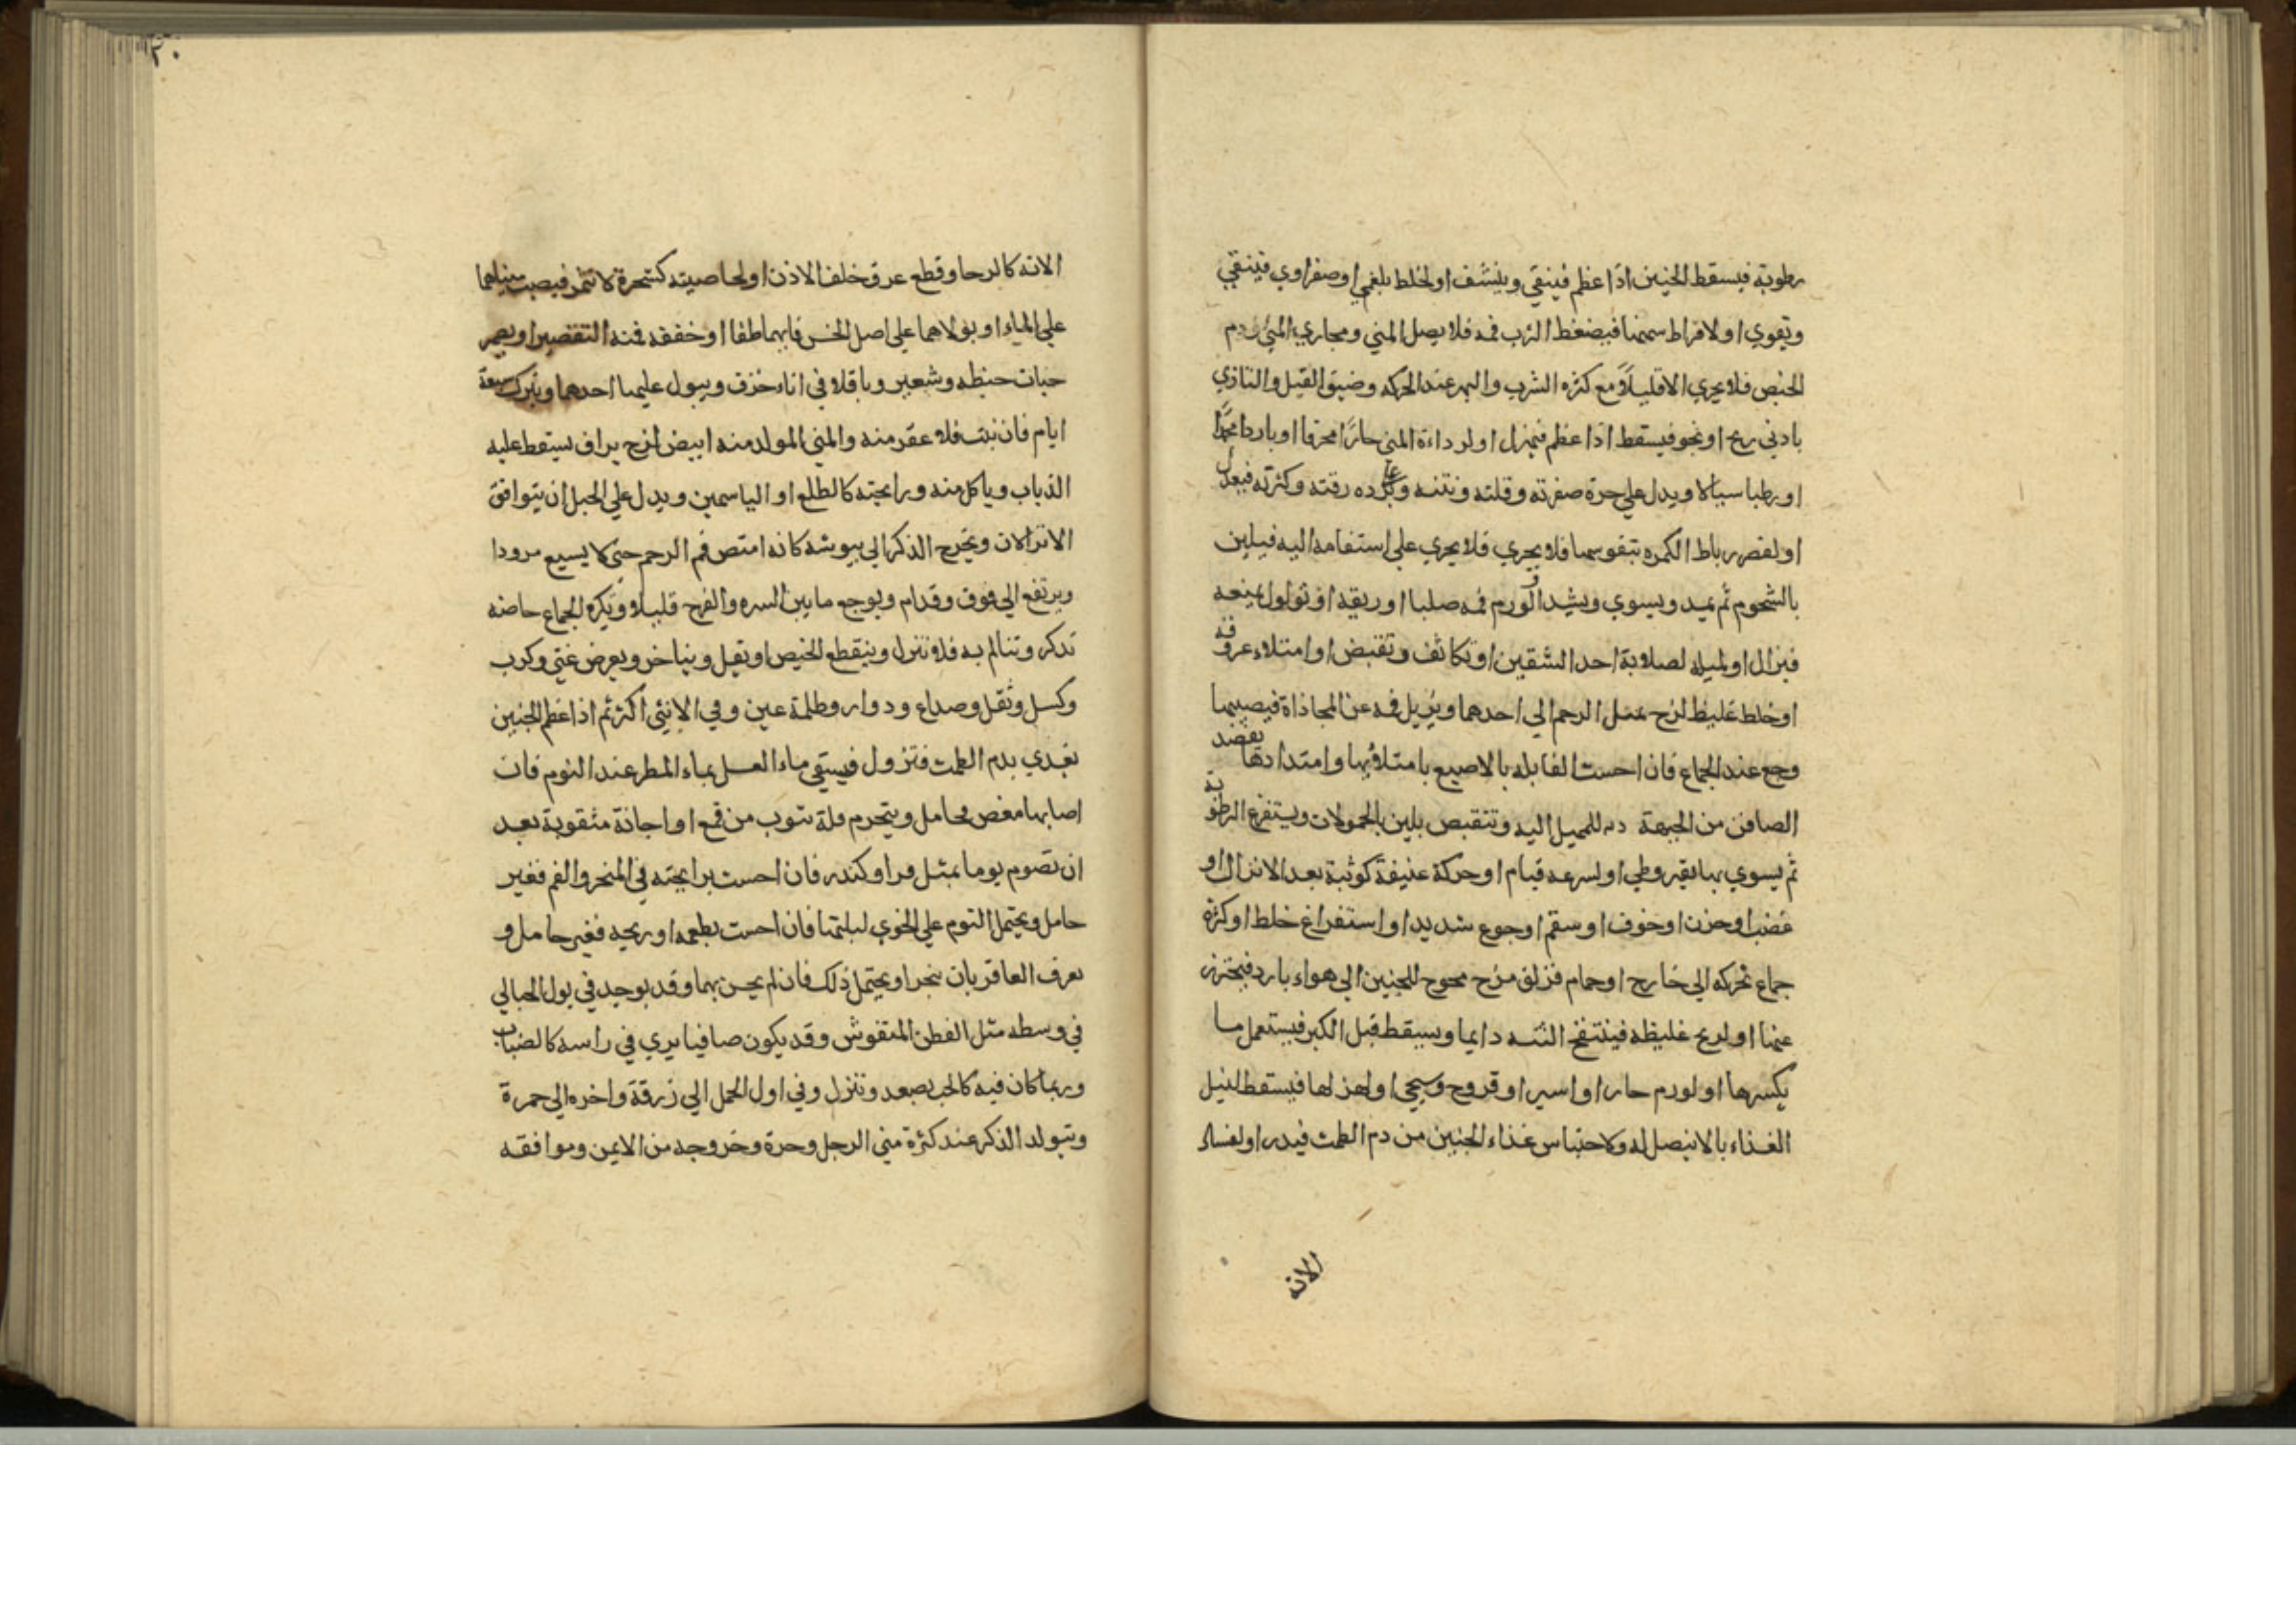 رطوبة فيسقط الجنين اذا عظم فينقي وينشف اولخلط بلغمي اوصفراوي فينقي
ويقوي اولافراط سمنها فيضغط الثرب فمه فلايصل المني ومجاري المني ودم
الحيض فلايجري الاقليلاً مع كثرة الشرب والبهر عند الحركه وضيق القبل والتاذي
بادني ريح اونجو فيسقط اذا عظم فيهزل اولرداءة المني حارًا محرقا اوباردا مجمدًا
اورطبا سيالا ويدل علي حرة صفرته وقلته ونتنه وعلي برده رقته وكثرته فيعدل
اولقصر رباط الكمره بتقوسها فلايجري فلايجري علي استقامه اليه فيلين
بالشحوم ثم يمد ويسوي ويشد اولورم فمه صلبا اوريقه اوثولول يمنعه
فيزال اولميله لصلابة احد الشقين اوتكاثف وتقبض اوامتلاء عروقه
اوخلط غليظ لزج يميل الرحم الي احدهما ويزيل فمه عن المحاذاة فيصيبها
وجع عند الجماع فان احست القابله بالاصبع بامتلائها وامتدادها يفصد
الصافن من الجبهة دم للميل اليه وتنقبض يلين بالحمولات ويستفرغ الرطوبة
ثم يسوي بها بقيروطي اولسرعه قيام اوحركة عنيفة كوثبة بعد الانزال او
غضب اوحزن اوخوف اوسقم اوجوع شديد اواستفراغ خلط اوكثرة
جماع تحركه الي خارج اوحمام فزلق مزح محوج للجنين الي هواء بارد فيحترز
عنها اولريح غليظه فينتفخ النته دايما ويسقط قبل الكبر فيستعمل ما
يكسرها اولورم حار اواسير اوقروح وسحج اولهزلها فيسقط لنيل
الغذاء بالاتيصل له ولاحتباس غذاء الجنين من دم الطمث فيدر اولفساد
الانه
٢٠
الانه كالرحا وقطع عروق خلف الاذن اولخاصيته كشجرة لاتثمر فيصب منياهما
علي الماء اوبولاهما علي اصل الخس فايهما طفا اوخففه فمنه التقصير اويصر
حبات حنطه وشعير وباقلا في اناء خزف ويبول عليها احدهما ويترك سبعة
ايام فان نبت فلا عقر منه والمني المولد منه ابيض لزج براق يسقط عليه
الذباب وياكل منه ورايحته كالطلع او الياسمين ويدل علي الحبل ان يتوافق
الانزالان ويخرج الذكر الي يبوسة كانه امتص فم الرحم حتي لايسيع مرودا
ويرتفع الي فوق وقدام ويوجع مابين السره والفرج قليلا ويكره الجماع خاصه
تذكر وتتالم به فلاتنزل وينقطع الحيض اويقل ويتاخر ويعرض غثي وكرب
وكسل وثقل وصداع ودوار وظلمة عين وفي الانثي اكثر ثم اذا عظم الجنين
تغذي بدم الطمث فتزول فيسقي ماء العسل بماء المطر عند النوم فان
اصابها مغص فحامل ويتحرم ملة بثوب من قمع اواجانة مثقوبة بعد
ان تصوم يوما بمثل مر اوكندر فان احست برايحته في المنخر والفم فغير
حامل ويحتمل الثوم علي الخوي ليلتها فان احست بطعمه اوريحه فغير حامل و
يعرف العاقر بان يبخر اويحتمل ذلك فان لم يحس بهما وقد يوجد في بول الحبالي
في وسطه مثل القطن المنفوش وقد يكون صافيا يري في راسه كالضباب
وربما كان فيه كالحب يصعد وتنزل وفي اول الحمل الي زرقة واخره الي حمرة
ويتولد الذكر عند كثرة مني الرجل وحرة وخروجه من الايمن وموافقه